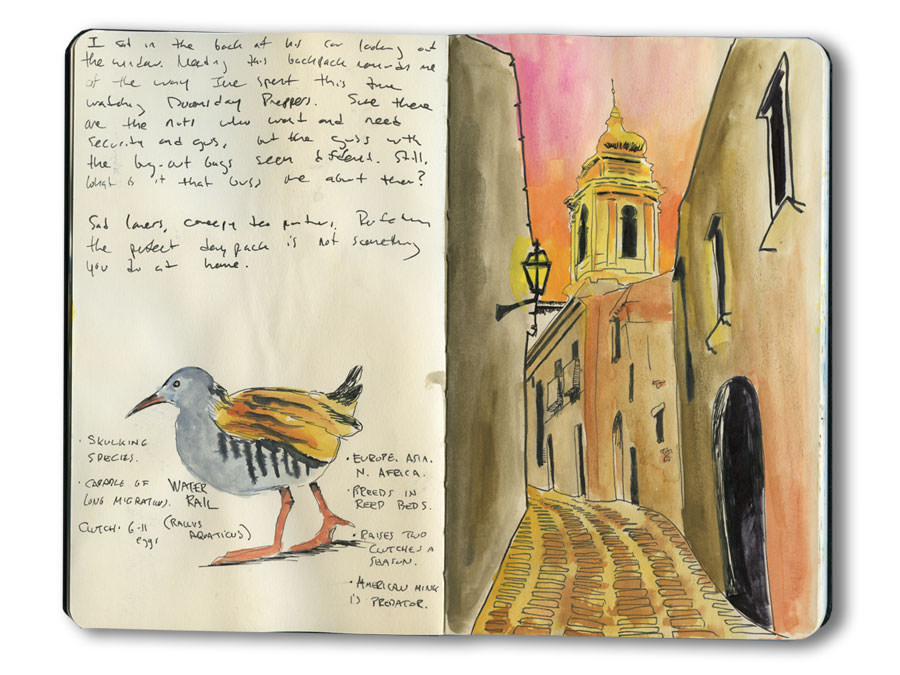 I sat in the back of his car looking out
the window. Needing this backpack reminds me
of the way I've spent this time
watching Doomsday Preppers. Sure there
are the nuts who want and need
security and guns, but the guys with
the bug-out bags seem different. Still,
what is it that bugs me about them?
Sad lovers, creepy tea partiers,
the perfect day pack is not something
you do at home.
· SKULKING
SPECIES.
· CAPABLE OF
LONG MIGRATIONS.
CLUTCH· 6-11
eggs
WATER
RAIL
(RALLUS
AQUATICUS)
· EUROPE. ASIA.
N. AFRICA.
· BREEDS IN
REED BEDS.
· RAISES TWO
CLUTCHES A
SEASON.
· AMERICAN MINK
IS PREDATOR.